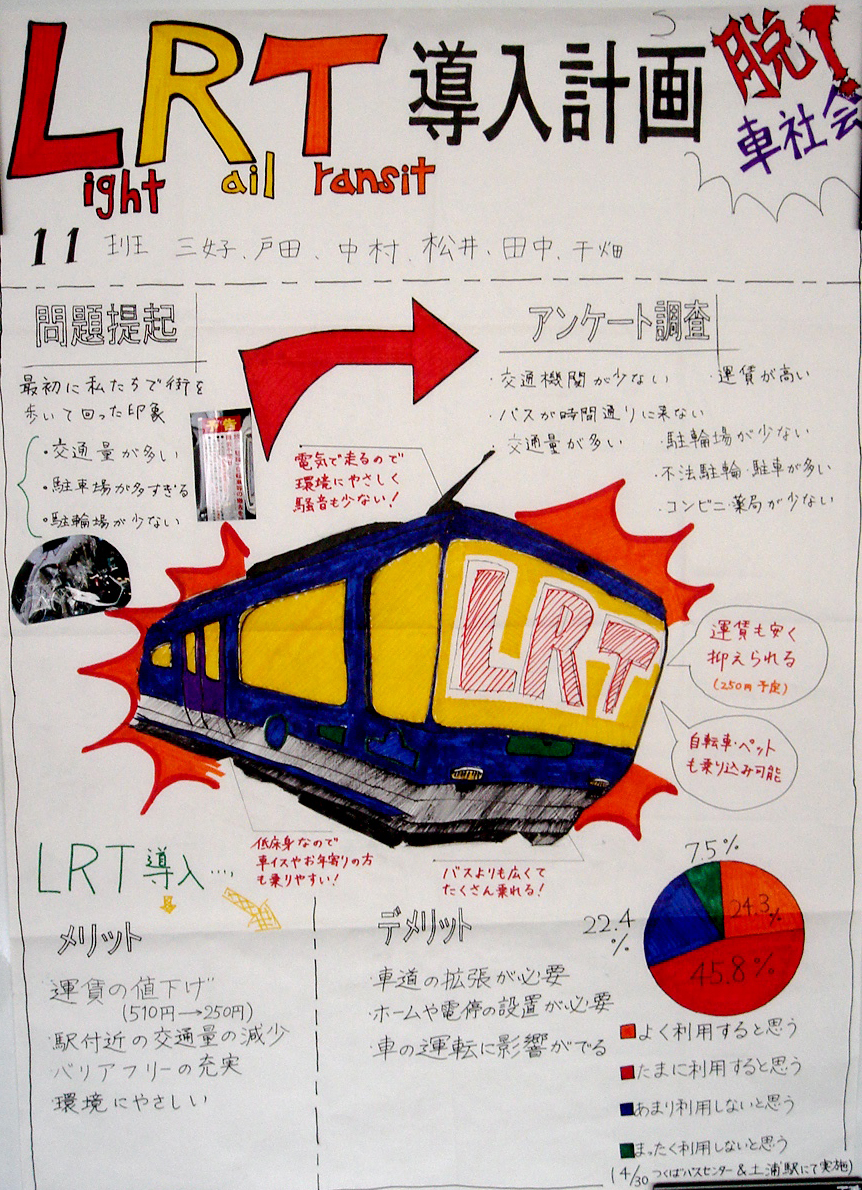 LRT導入計画
脱!
車社会
Light Rail Transit
11 班 三好、戸田、中村、松井、田中、干畑
問題提起
最初に私たちで街を
歩いて回った印象
・交通量が多い
・駐車場が多すぎる
・駐輪場が少ない
予告
アンケート調査
・交通機関が少ない ・運賃が高い
・バスが時間通りに来ない
・交通量が多い ・駐輪場が少ない
・不法駐輪・駐車が多い
・コンビニ・薬局が少ない
電気で走るので
環境にやさしく
騒音も少ない!
LRT
運賃も安く
抑えられる
(250円予定)
自転車・ペット
も乗り込み可能
低床身なので
車イスやお年寄りの方
も乗りやすい!
バスよりも広くて
たくさん乗れる!
LRT導入....
メリット
・運賃の値下げ
(510円→250円)
・駅付近の交通量の減少
・バリアフリーの充実
・環境にやさしい
デメリット
・車道の拡張が必要
・ホームや電停の設置が必要
・車の運転に影響がでる
7.5%
24.3%
22.4%
45.8%
よく利用すると思う
たまに利用すると思う
あまり利用しないと思う
まったく利用しないと思う
(4/30 つくばバスセンター&土浦駅にて実施)